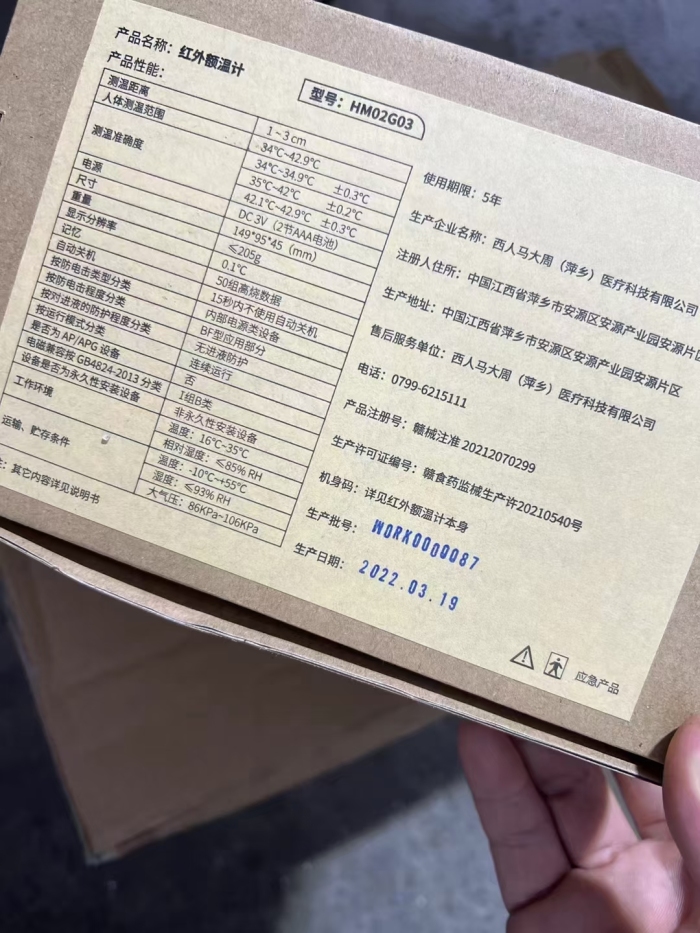 产品名称：红外额温计
产品性能：
型号：HM02G03
测温距离 1~3cm
人体测温范围 34℃~42.9℃
测温准确度 34℃~34.9℃ ±0.3℃
35℃~42℃ ±0.2℃
42.1℃~42.9℃ ±0.3℃
电源 DC 3V（2节AAA电池）
尺寸 149*95*45（mm）
重量 ≤205g
显示分辨率 0.1℃
记忆 50组高烧数据
自动关机 15秒内不使用自动关机
按防电击类型分类 内部电源类设备
按防电击程度分类 BF型应用部分
按对进液的防护程度分类 无进液防护
按运行模式分类 连续运行
是否为 AP/APG 设备 否
电磁兼容按 GB4824-2013 分类 I组B类
设备是否为永久性安装设备 非永久性安装设备
工作环境 温度：16℃~35℃
相对湿度：≤85% RH
运输、贮存条件 温度：-10℃~+55℃
湿度：≤93% RH
大气压：86KPa~106KPa
：其它内容详见说明书
使用期限：5年
生产企业名称：西人马大周（萍乡）医疗科技有限公司
注册人住所：中国江西省萍乡市安源区安源产业园安源片区
生产地址：中国江西省萍乡市安源区安源产业园安源片区
售后服务单位：西人马大周（萍乡）医疗科技有限公司
电话：0799-6215111
产品注册号：赣械注准 20212070299
生产许可证编号：赣食药监械生产许20210540号
机身码：详见红外额温计本身
生产批号：WORK0000087
生产日期：2022.03.19
应急产品